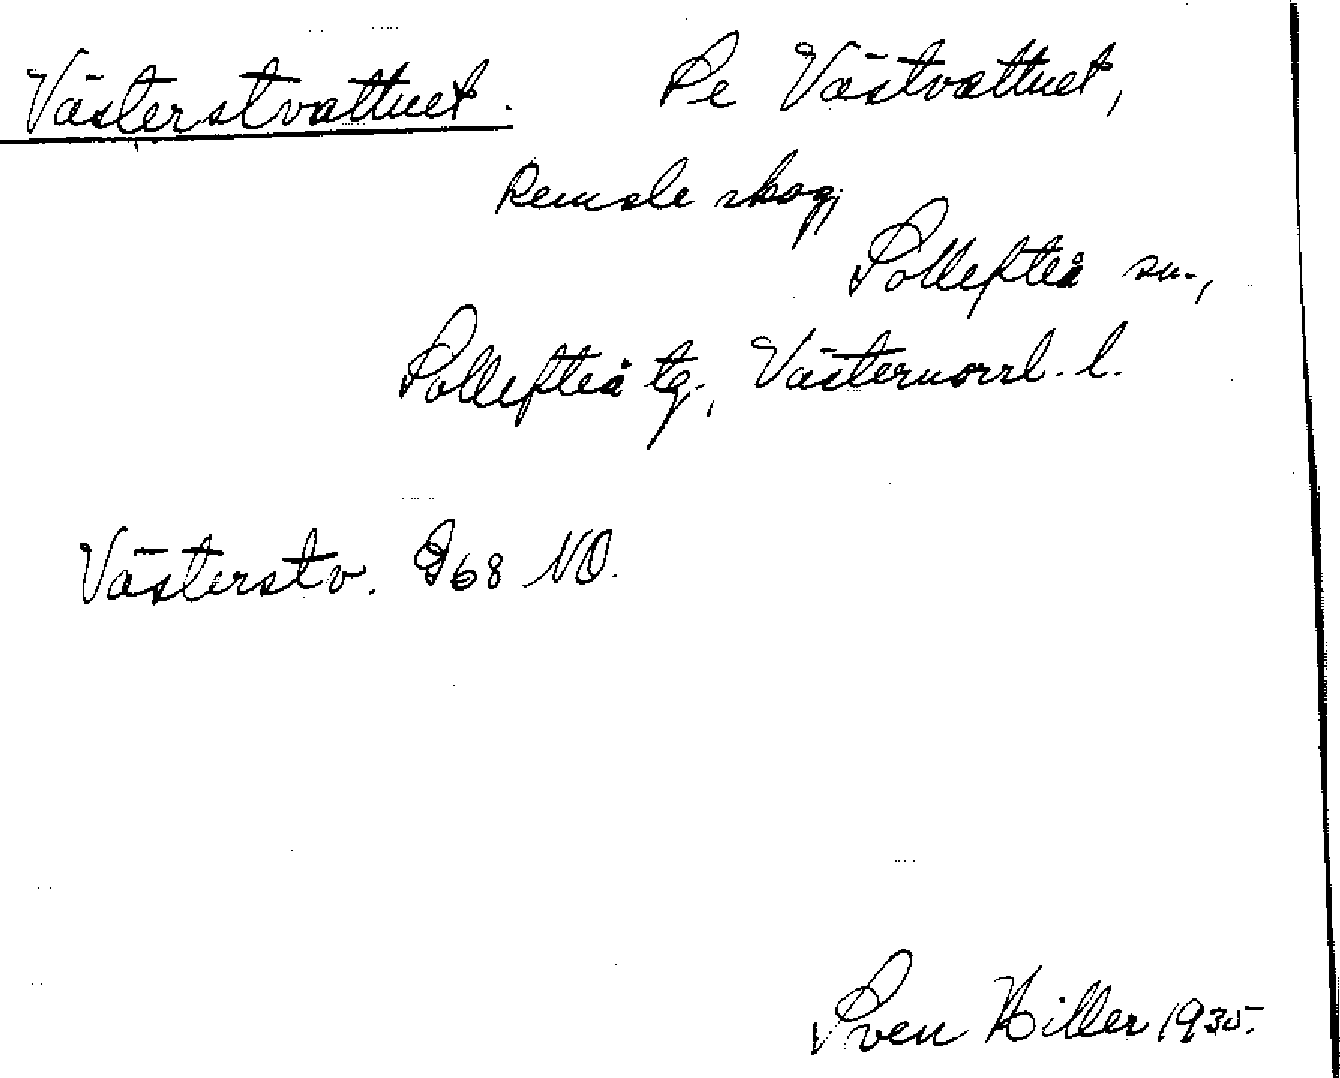 Västerstvattnet. Se Västvattnet,
Remsle skog,
Sollefteå sn.,
Sollefteå tg., Västernorrl. l.
Västerstv. G68 NO.
Sven Hiller 1935.